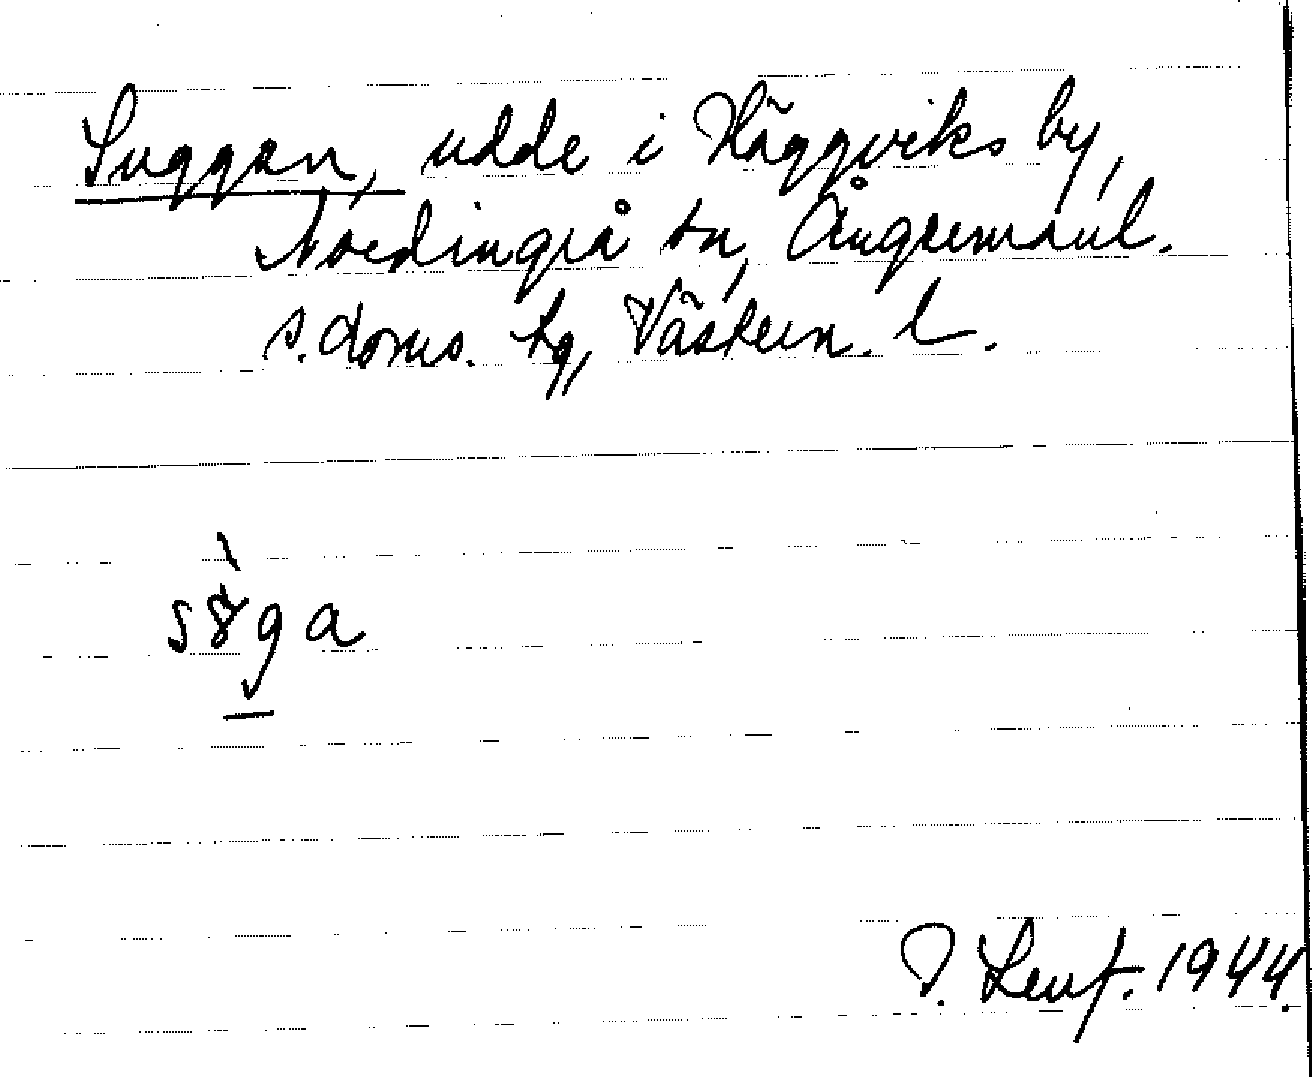 Suggan, udde i Häggviks by,
Nordingrå sn, Ångermanl.
s. doms. tg, Västern. l.
P. Lenf. 1944.